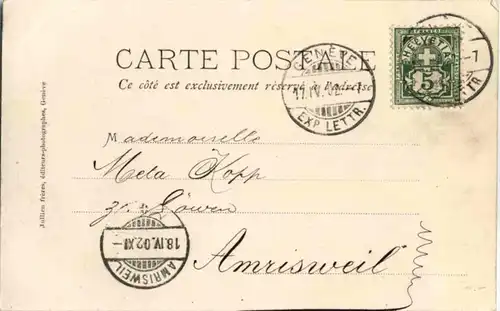 CARTE POSTALE
Ce côté est exclusivement réservé à l'adresse
HELVETIA
FRANCO
5
GENÈVE
17.IV.02.
EXP. LETTR.
Mademoiselle
Meta Kopp
zr. Löwen
Amrisweil
AMRISWEIL
18.IV.02.XI-
Jullien frères, éditeurs-photographes, Genève